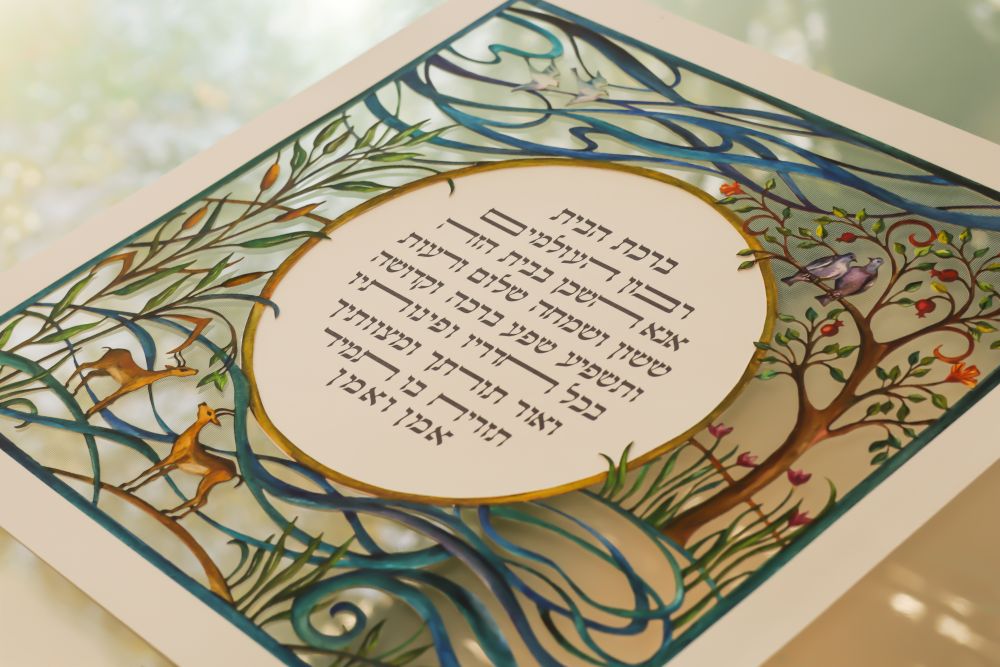 ברכת הבית
רבון העולמים
אנא השכן בבית הזה
ששון ושמחה שלום ורעות
ותשפיע שפע ברכה וקדושה
בכל חדריו ופינותיו
ואור תורתך ומצוותיך
תזריח בו תמיד
אמן ואמן